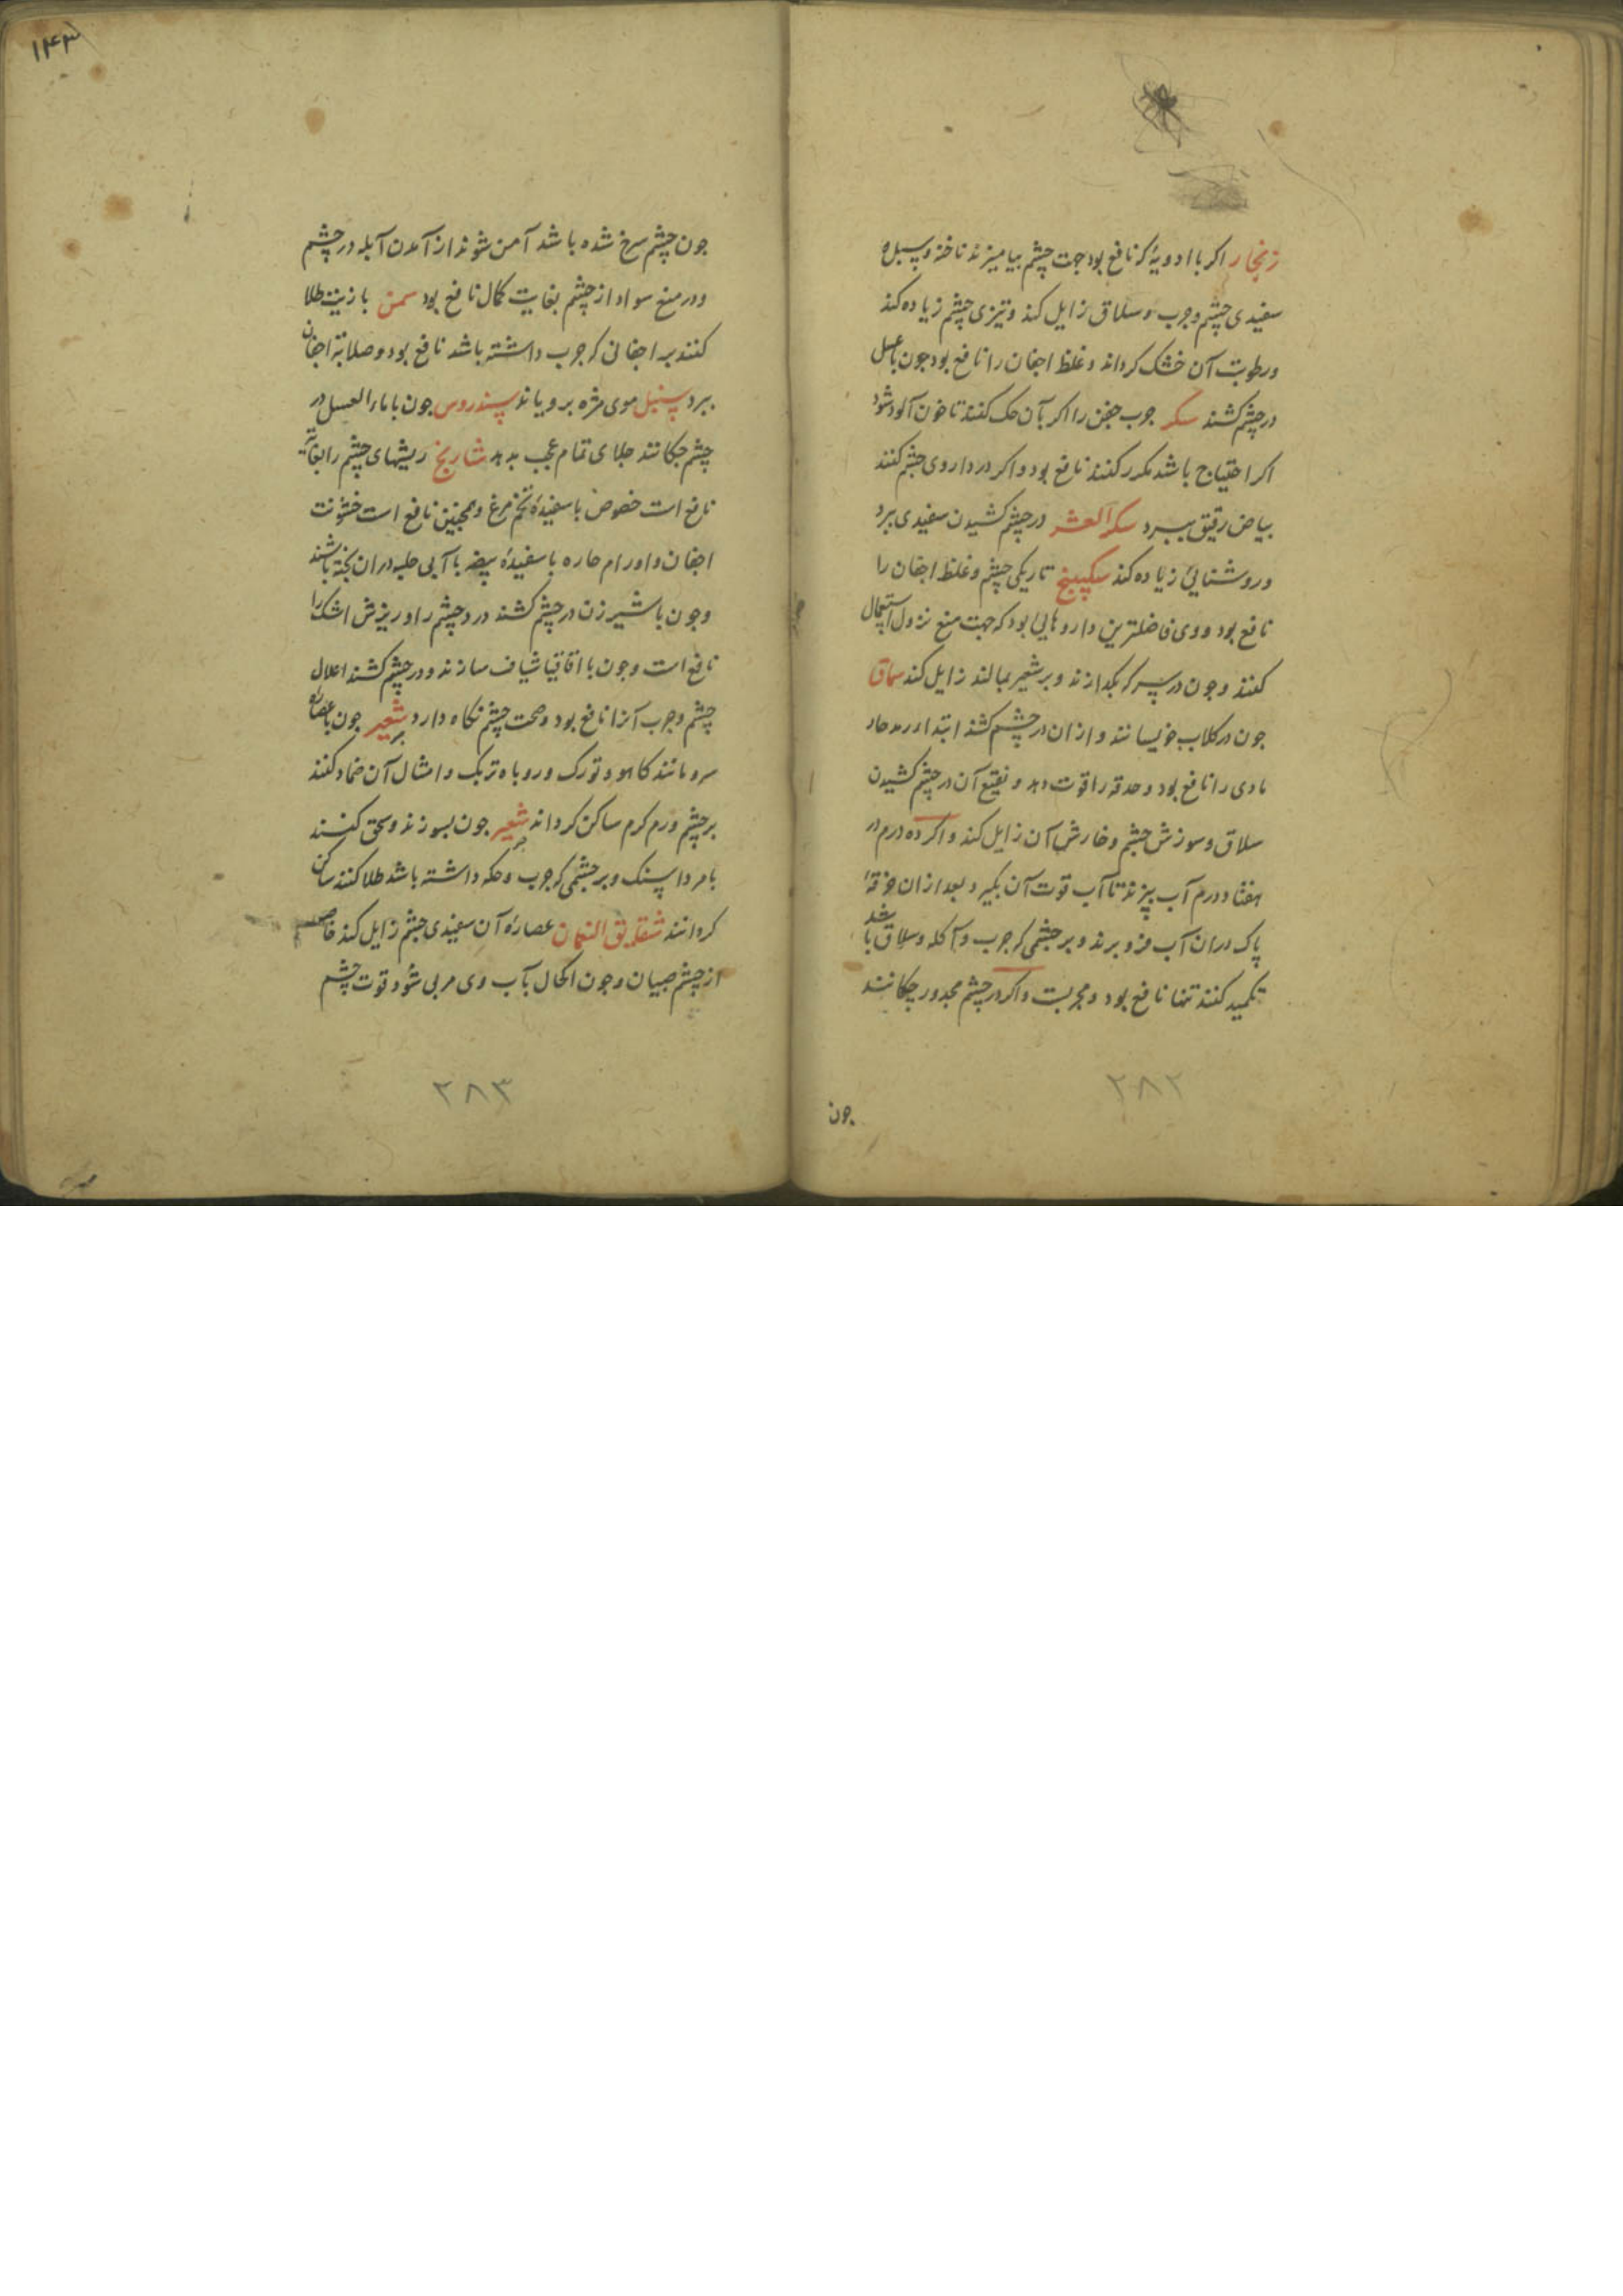 زنجار اکر با ادویهٔ که نافع بود جهت چشم بیامیزند ناخنه و سبل و
سفیدی چشم و جرب و سلاق زایل کند و تیزی چشم زیاده کند
و رطوبت آن خشک کرداند و غلظ اجفان را نافع بود چون با عسل
در چشم کشند سکر جرب جفن را اکر بآن حک کنند تا خون آلود شود
اکر احتیاج باشد مکرر کنند نافع بود و اکر در داروی چشم کنند
بیاض رقیق ببرد سکر العشر در چشم کشیدن سفیدی برد
و روشنایی زیاده کند سکبینج تاریکی چشم و غلظ اجفان را
نافع بود و وی فاضلترین داروهایی بود که جهت منع نزول استعمال
کنند و جون در سرکه بکدازند و بر شعیر بمالند زایل کند سماق
جون در کلاب خویسانند و از ان در چشم کشند ابتداء رمد حار
مادی را نافع بود و حدقه را قوت دهد و نقیع آن در چشم کشیدن
سلاق و سوزش چشم و خارش آن زایل کند و اکر ده درم در
هفتاد درم آب بپزند تا آب قوت آن بکیرد و بعد از ان خرقهٔ
پاک در ان آب فرو برند و بر چشمی که جرب و آکله و سلاق باشد
تکمید کنند تنها نافع بود و مجربست و اکر در چشم مجدور چکانند
جون
۲۸۲
۱۴۳
جون چشم سرخ شده باشد آمن شوند از آمدن آبله در چشم
و در منع سواد از چشم بغایت کمال نافع بود سمن با زیت طلا
کنند بر اجفانی که جرب داشته باشد نافع بود و صلابة اجفان
ببرد سنبل موی مژه برویاند سندروس جون با ماء العسل در
چشم جکانند جلای تمام عجب بدهد شاریخ ریشهای چشم را بغایة
نافع است خصوض با سفیدهٔ تخم مرغ و همچنین نافع است خشونت
اجفان و اورام حاره با سفیدهٔ بیضه با آبی حلبه در ان پخته باشند
و جون با شیر زن در چشم کشند درد چشم را و ریزش اشک را
نافع است و جون با اقاقیا شیاف سازند و در چشم کشند اعلال
چشم و جرب آنرا نافع بود و صحت چشم نکاه دارد شعیر جون با عصارهٔ
سرو مانند کاهو و تورک و روباه تربک و امثال آن ضماد کنند
بر چشم ورم کرم ساکن کرداند شعیر جون بسوزند و سحق کنند
با مرداسنک و بر چشمی که جرب و حکه داشته باشد طلا کنند ساکن
کردانند شقایق النعمان عصارهٔ آن سفیدی چشم زایل کند خاصه
از چشم صبیان و جون اکحال بآب وی مربی شود قوت چشم
۲۸۳